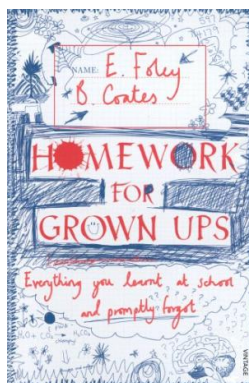 NAME: E. Foley
B. Coates
HOMEWORK
FOR
GROWN UPS
Everything you learnt at school
and promptly forgot
VINTAGE